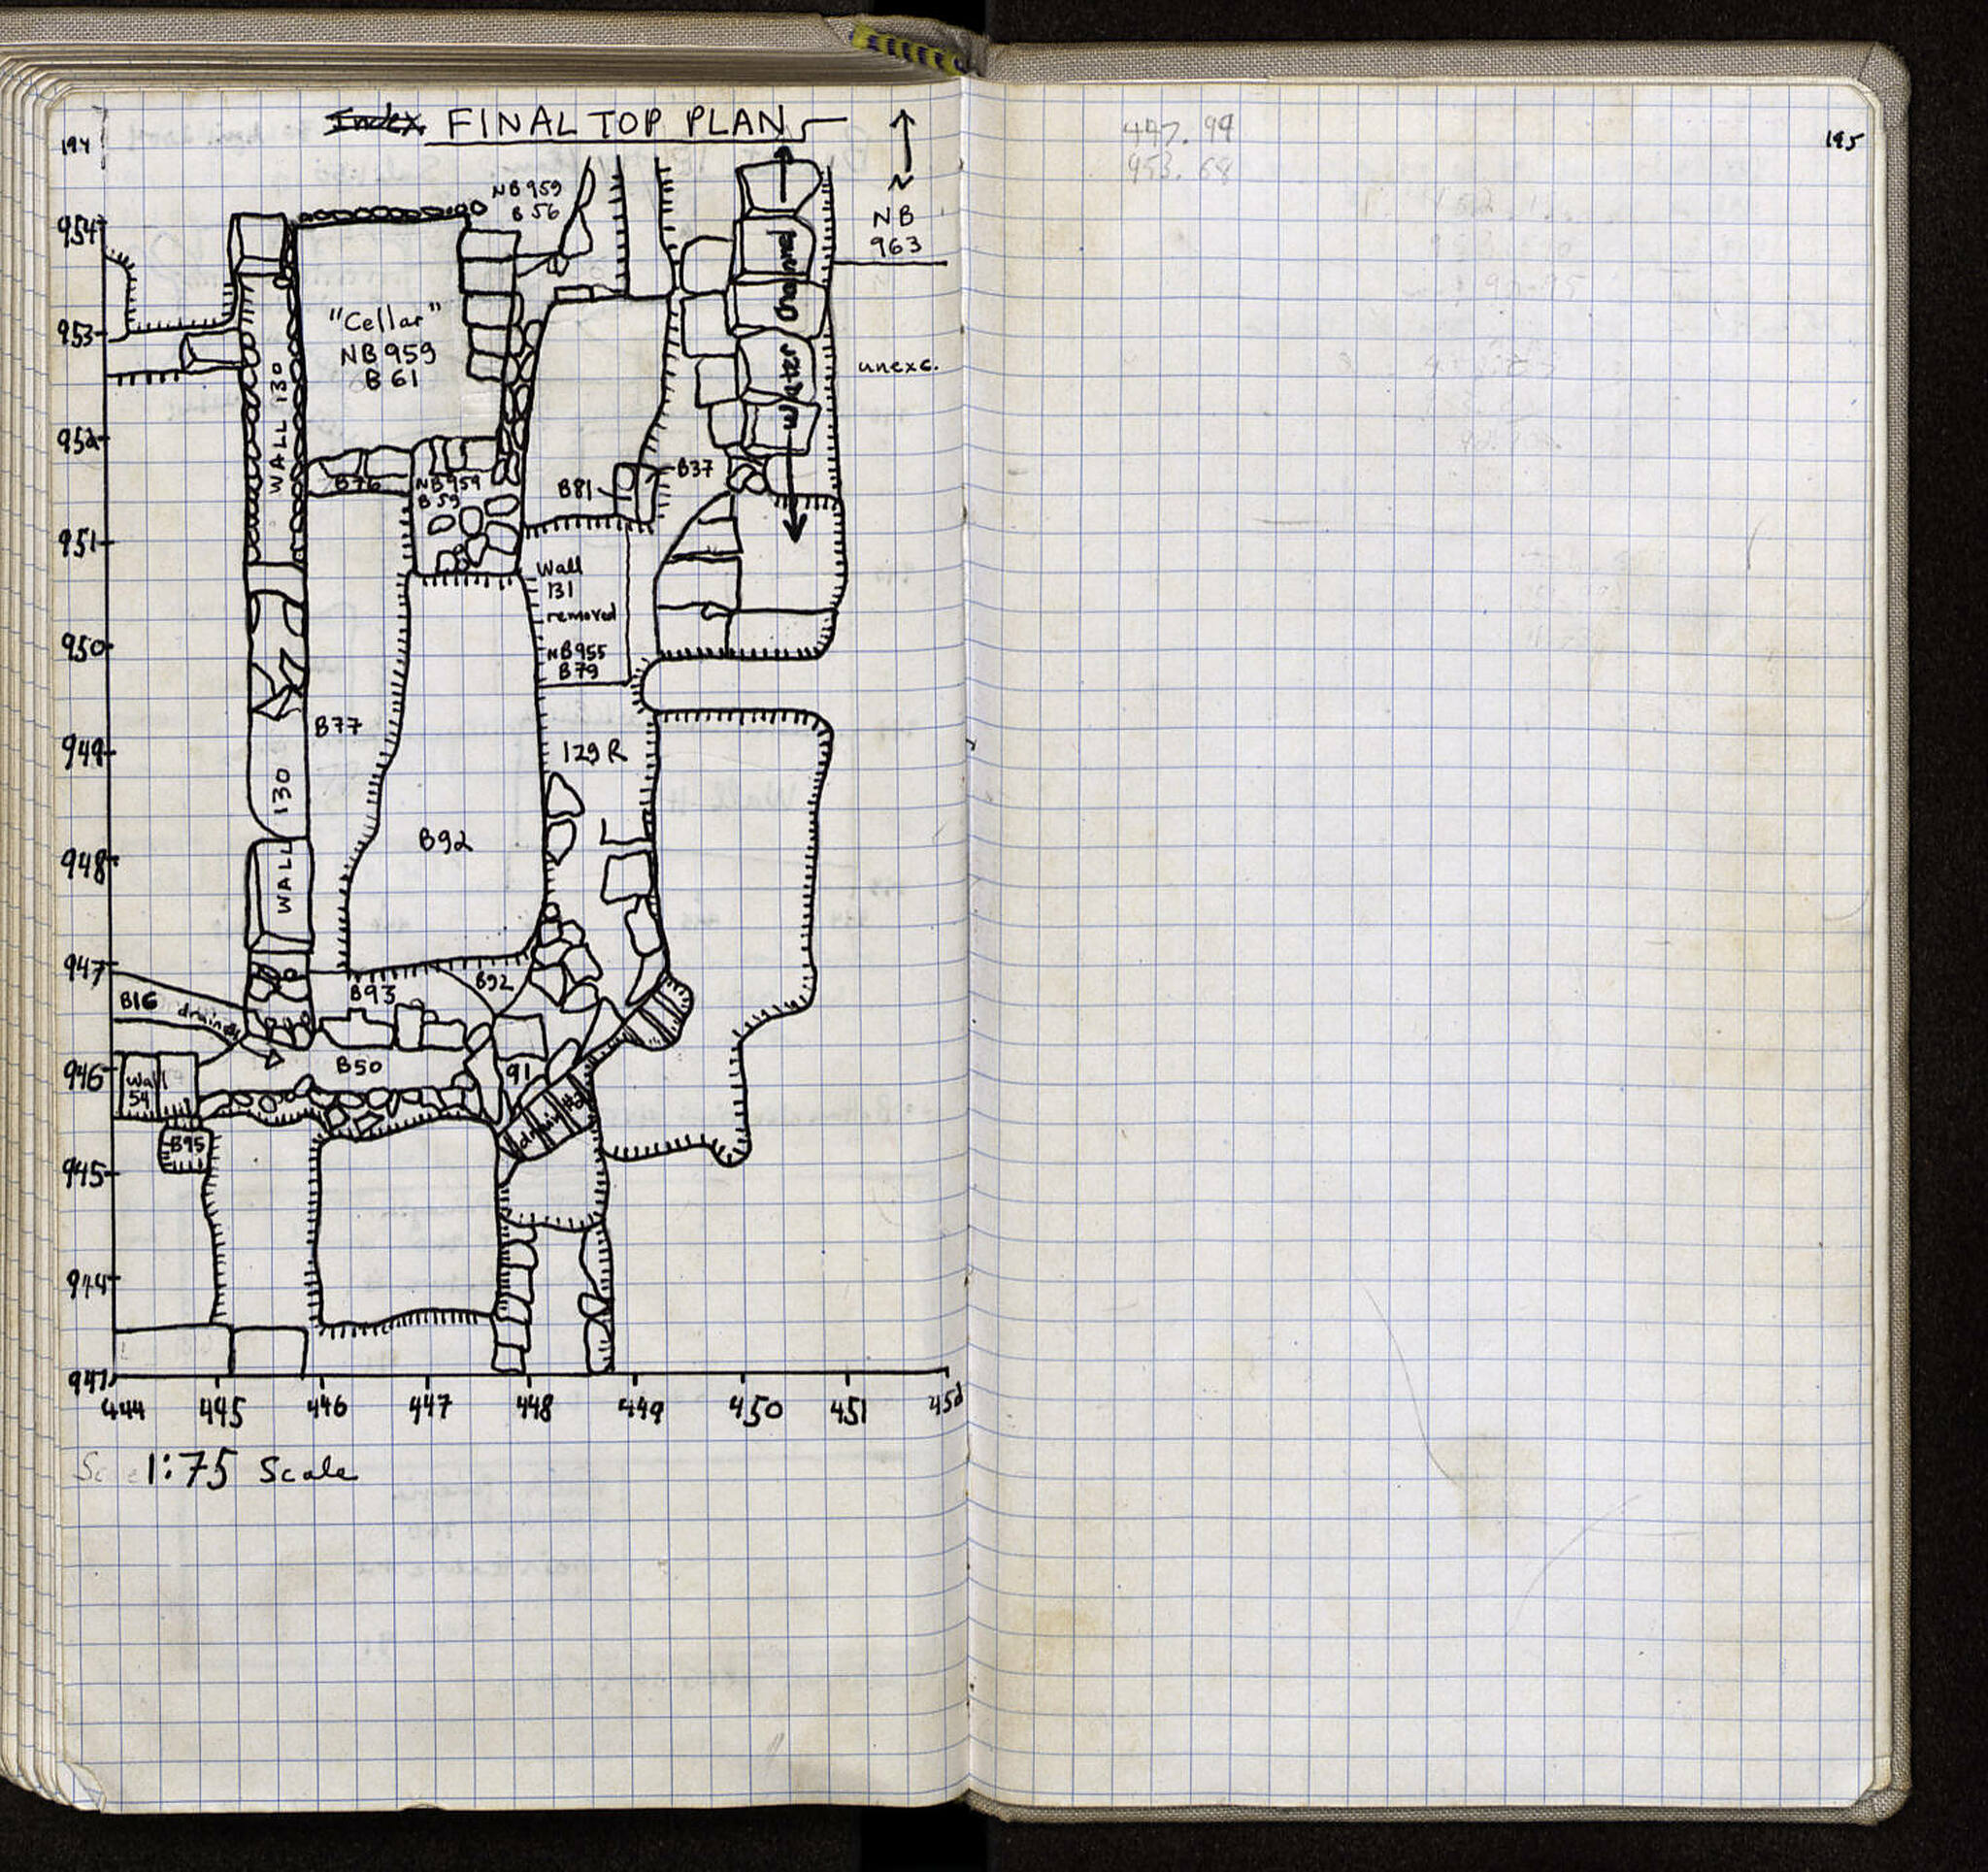 194
Index FINAL TOP PLAN
N
NB
963
NB 959
B 56
954
953
952
951
950
949
948
947
946
945
944
"Cellar"
NB 959
B 61
unexc.
WALL 130
B76
NB 959
B 59
B81
B37
Wall
131
removed
NB 955
B79
B77
129 R
130
WALL
B92
B93
B92
B16
B50
91
Wall
54
B95
444 445 446 447 448 449 450 451
1:75 Scale
447.99
453.68
195